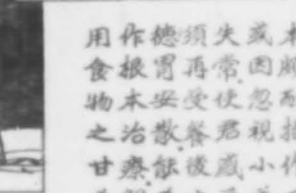 或因忽視小
失常使君感
須再受餐後
德胃安散能
作根本治療
用食物之甘